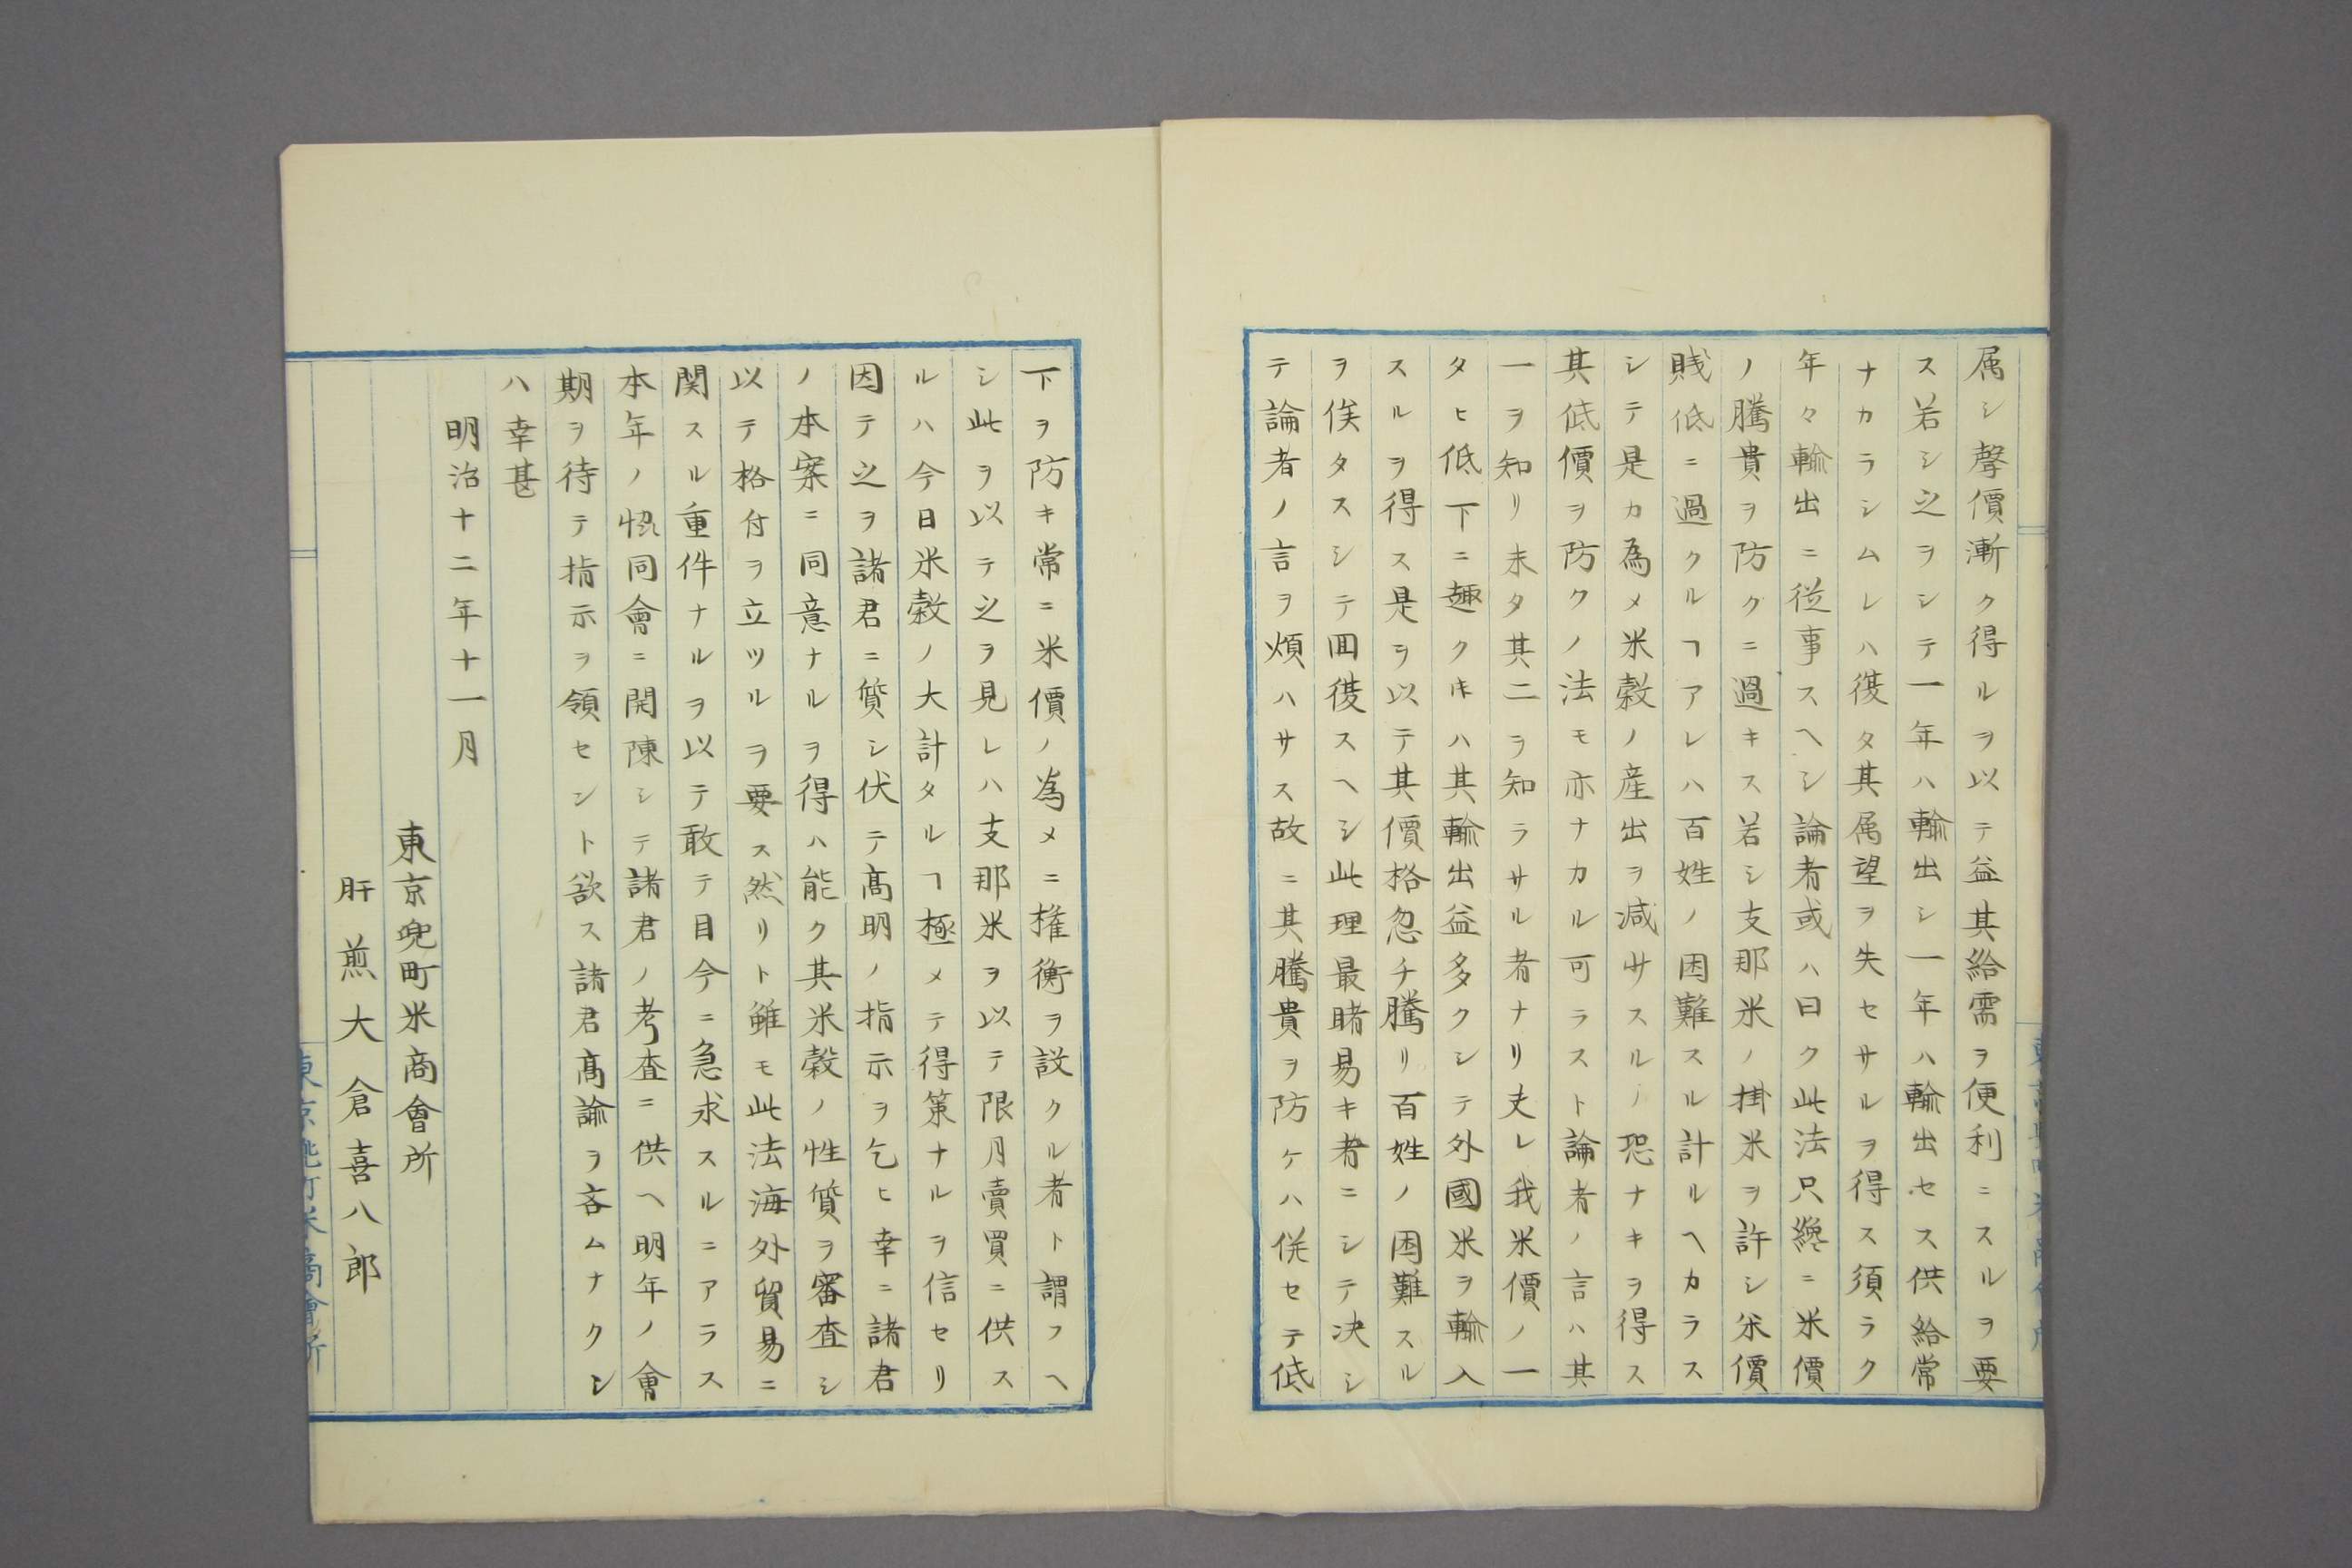 属シ聲價漸ク得ルヲ以テ益其給需ヲ便利ニスルヲ要
ス若シ之ヲシテ一年ハ輸出シ一年ハ輸出セス供給常
ナカラシムレハ復タ其属望ヲ失セサルヲ得ス須ラク
年々輸出ニ從事スヘシ論者或ハ曰ク此法只纔ニ米價
ノ騰貴ヲ防クニ過キス若シ支那米ノ掛米ヲ許シ米價
賎低ニ過クルヿアレハ百姓ノ困難スル計ルヘカラス
シテ是カ為メ米穀ノ産出ヲ减サスルノ恐ナキヲ得ス
其低價ヲ防クノ法モ亦ナカル可ラスト論者ノ言ハ其
一ヲ知リ未タ其二ヲ知ラサル者ナリ夫レ我米價ノ一
タヒ低下ニ趣ク𪜈ハ其輸出益多クシテ外國米ヲ輸入
スルヲ得ス是ヲ以テ其價格忽チ騰リ百姓ノ困難スル
ヲ俟タスシテ回復スヘシ此理最睹易キ者ニシテ决シ
テ論者ノ言ヲ煩ハサス故ニ其騰貴ヲ防ケハ併セテ低
下ヲ防キ常ニ米價ノ為メニ権衡ヲ設クル者ト謂フヘ
シ此ヲ以テ之ヲ見レハ支那米ヲ以テ限月賣買ニ供ス
ルハ今日米穀ノ大計タルヿ極メテ得策ナルヲ信セリ
因テ之ヲ諸君ニ質シ伏テ髙明ノ指示ヲ乞ヒ幸ニ諸君
ノ本案ニ同意ナルヲ得ハ能ク其米穀ノ性質ヲ審査シ
以テ格付ヲ立ツルヲ要ス然リト雖モ此法海外貿易ニ
関スル重件ナルヲ以テ敢テ目今ニ急求スルニアラス
本年ノ懇同會ニ開陳シテ諸君ノ考査ニ供ヘ明年ノ會
期ヲ待テ指示ヲ領セント欲ス諸君髙諭ヲ吝ムナクン
ハ幸甚
明治十二年十一月
東京兜町米商會所
肝煎大倉喜八郎
東京兜町米商會所